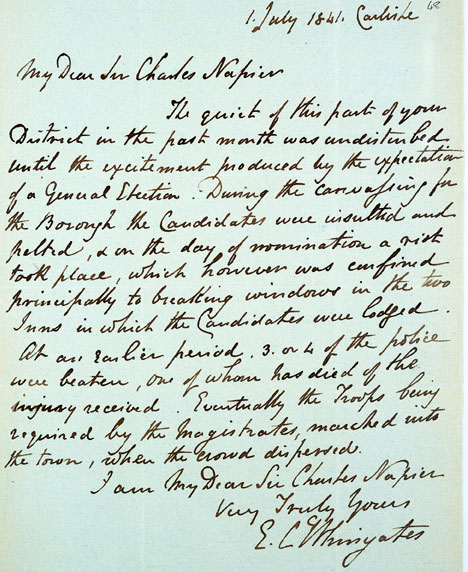 68
1. July 1841. Carlisle
My Dear Sir Charles Napier
The quiet of this part of your
District in the past month was undisturbed
until the excitement produced by the expectation
of a General Election. During the canvassing for
the Borough the Candidates were insulted and
pelted, & on the day of nomination a riot
took place, which however was confined
principally to breaking windows in the two
Inns in which the Candidates were lodged.
At an earlier period, 3. or 4 of the police
were beaten, one of whom has died of the
injury received. Eventually the Troops being
required by the Magistrates, marched into
the town, when the crowd dispersed.
I am My Dear Sir Charles Napier
Very Truly Yours
E. C. Whinyates